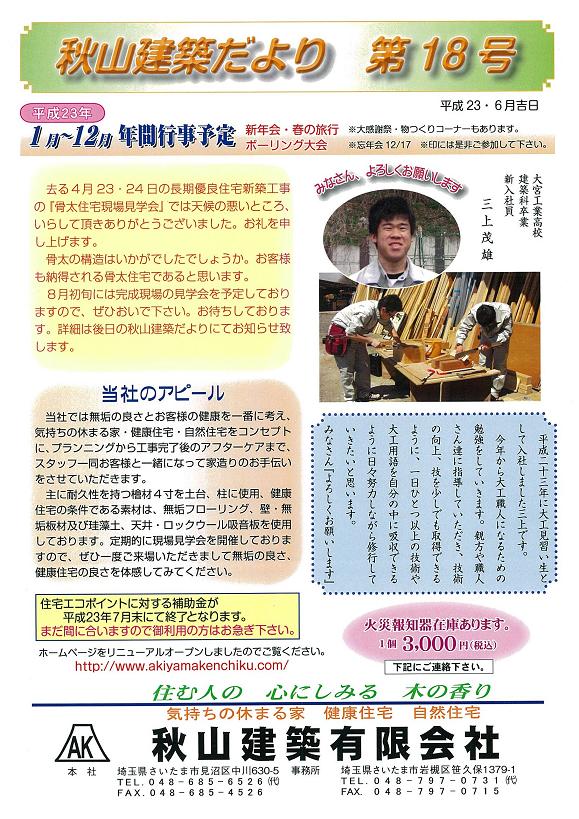 秋山建築だより　第18号
平成23・6月吉日
平成23年
1月～12月 年間行事予定
新年会・春の旅行
ボーリング大会
※大感謝祭・物つくりコーナーもあります。
※忘年会12/17　※印には是非ご参加して下さい。
去る4月23・24日の長期優良住宅新築工事
の『骨太住宅現場見学会』では天候の悪いところ、
いらして頂きありがとうございました。お礼を申
し上げます。
骨太の構造はいかがでしたでしょうか。お客様
も納得される骨太住宅であると思います。
8月初旬には完成現場の見学会を予定しており
ますので、ぜひおいで下さい。お待ちしておりま
す。詳細は後日の秋山建築だよりにてお知らせ致
します。
みなさん、よろしくお願いします
大宮工業高校
建築科卒業
新入社員
三上茂雄
当社のアピール
当社では無垢の良さとお客様の健康を一番に考え、
気持ちの休まる家・健康住宅・自然住宅をコンセプト
に、プランニングから工事完了後のアフターケアまで、
スタッフ一同お客様と一緒になって家造りのお手伝い
をさせていただきます。
主に耐久性を持つ檜材4寸を土台、柱に使用、健康
住宅の条件である素材は、無垢フローリング、壁・無
垢板材及び珪藻土、天井・ロックウール吸音板を使用
しております。定期的に現場見学会を開催しておりま
すので、ぜひ一度ご来場いただきまして無垢の良さ、
健康住宅の良さを体感してみてください。
平成二十三年に大工見習い生と
して入社しました三上です。
今年から大工職人になるための
勉強をしていきます。親方や職人
さん達に指導していただき、技術
の向上、技を少しでも取得できる
ように、一日ひとつ以上の技術や
大工用語を自分の中に吸収できる
ように日々努力しながら修行して
いきたいと思います。
みなさん『よろしくお願いします』
住宅エコポイントに対する補助金が
平成23年7月末にて終了となります。
まだ間に合いますので御利用の方はお急ぎ下さい。
ホームページをリニューアルオープンしましたのでご覧ください。
http://www.akiyamakenchiku.com/
火災報知器在庫あります。
1個 3,000円(税込)
下記にご連絡下さい。
住む人の　心にしみる　木の香り
気持ちの休まる家　健康住宅　自然住宅
AK
秋山建築有限会社
本社　埼玉県さいたま市見沼区中川630-5
TEL.048-685-6526(代)
FAX.048-685-4526
事務所　埼玉県さいたま市岩槻区笹久保1379-1
TEL.048-797-0731(代)
FAX.048-797-0715